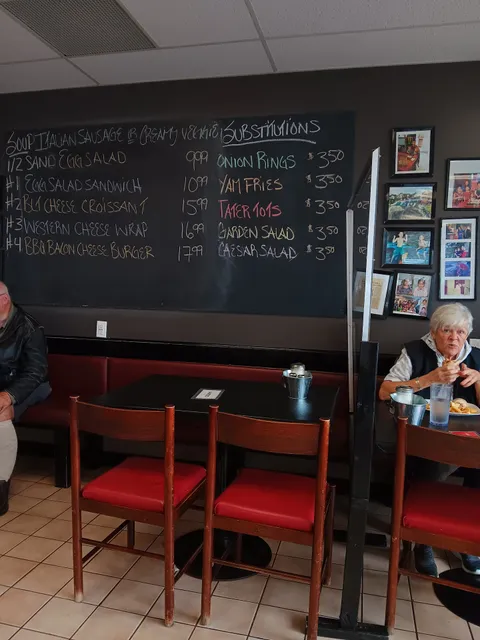 SOUP ITALIAN SAUSAGE OR CREAMY VEGGIE
1/2 SAND EGG SALAD 9.99
#1 EGG SALAD SANDWICH 10.99
#2 BLT CHEESE CROISSANT 15.99
#3 WESTERN CHEESE WRAP 16.99
#4 BBQ BACON CHEESE BURGER 17.99
SUBSTITUTIONS
ONION RINGS $3.50
YAM FRIES $3.50
TATER TOTS $3.50
GARDEN SALAD $3.50
CAESAR SALAD $3.50